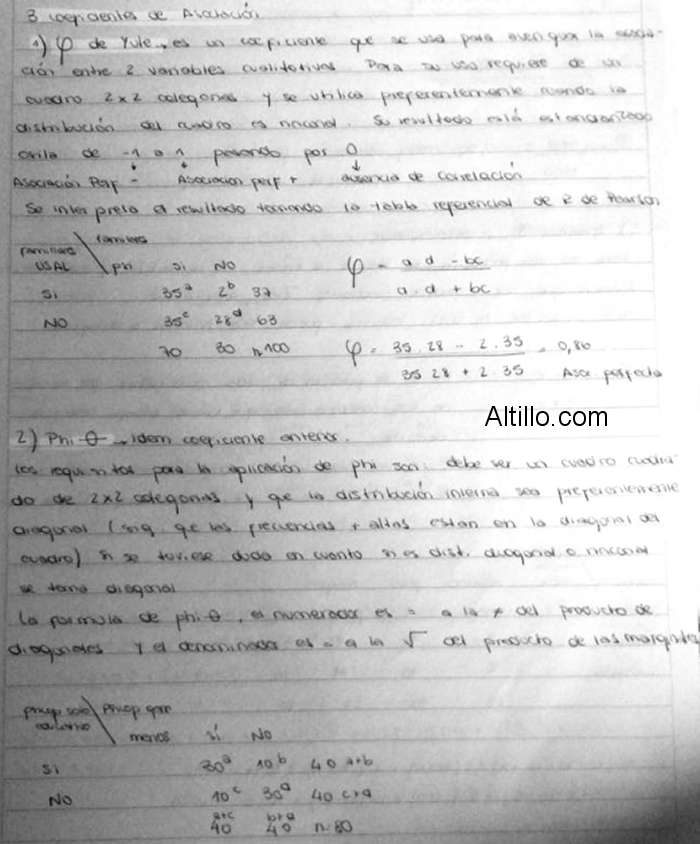 3 coeficientes de Asociación
1) φ de Yule → es un coeficiente que se usa para averiguar la asocia-
ción entre 2 variables cualitativas Para su uso requiere de un
cuadro 2x2 categorias y se utiliza preferentemente cuando la
distribución del cuadro es rinconal. Su resultado está estandarizado
oscila de -1 a 1 pasando por 0
Asociación Perf - Asociacion perf + ausencia de correlación
Se interpreta el resultado tomando la tabla referencial de R de Pearson
familiares
familiares
USAL \ phi si NO
Si 35ᵃ 2ᵇ 37
NO 35ᶜ 28ᵈ 63
70 30 n 100
φ = a.d - bc
a.d + bc
φ = 35.28 - 2.35 = 0,86
35 28 + 2.35 Asoc perfecta
Altillo.com
2) Phi θ → Idem coeficiente anterior.
Los requisitos para la aplicación de phi son: debe ser un cuadro cuadra
do de 2x2 categorias y qe la distribución interna sea preferentemente
diagonal (sig qe las frecuencias + altas estan en la diagonal del
cuadro) si se tuviese duda en cuanto si es dist. diagonal o rinconal
se toma diagonal
La formula de phi θ, el numerador es = a la ≠ del producto de
diagonales y el denominador es = a la √ del producto de las marginales
menos sí No
Si 30ᵃ 10ᵇ 40 a+b
NO 10ᶜ 30ᵈ 40 c+d
a+c b+d
40 40 n:80